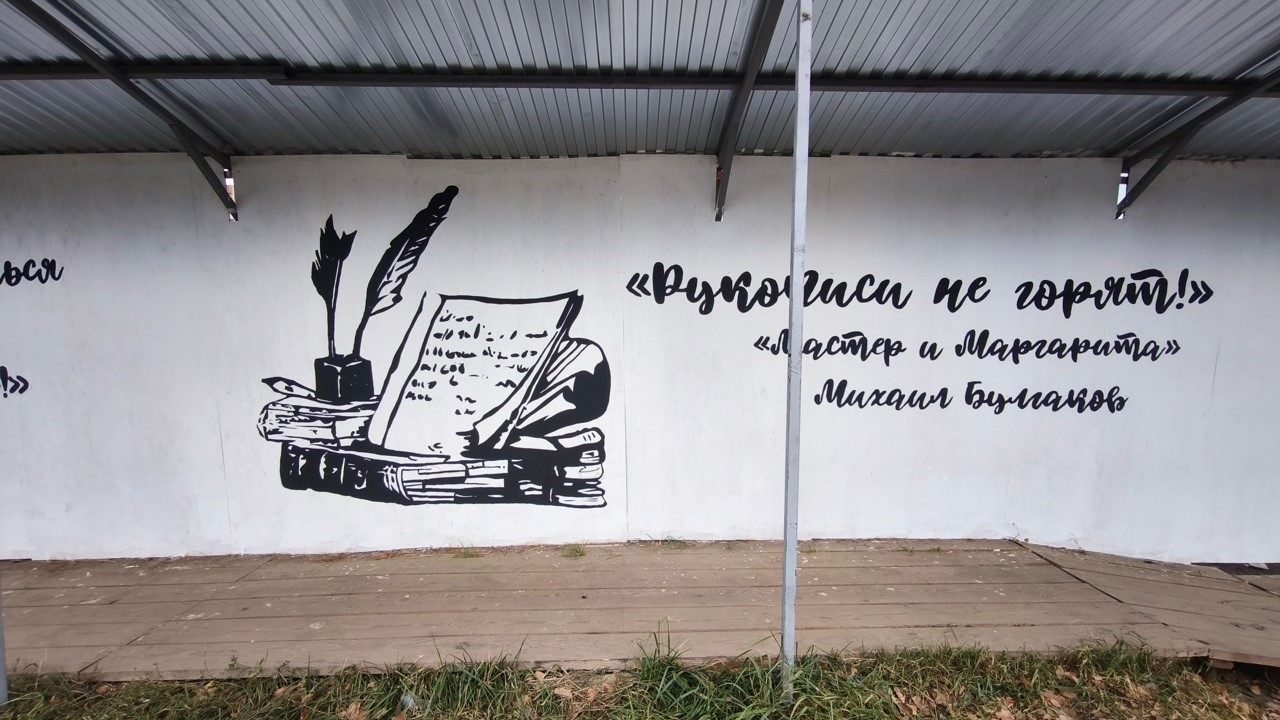 ься
!»
«Рукописи не горят!»
«Мастер и Маргарита»
Михаил Булгаков